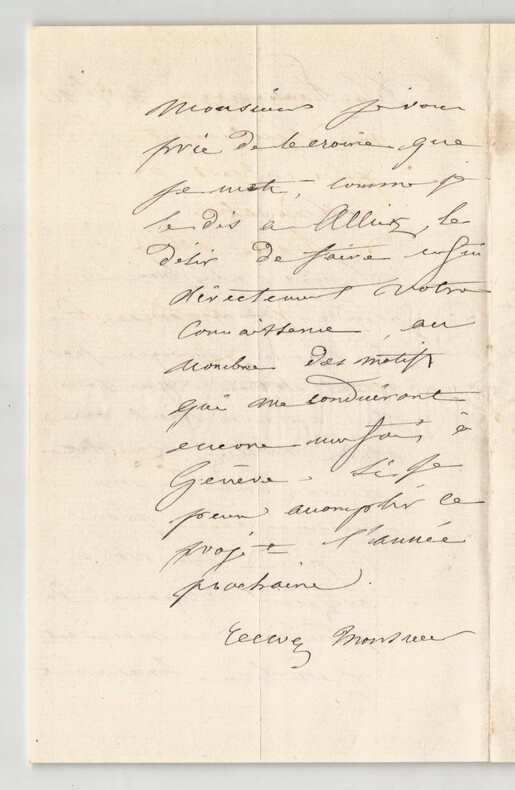 Monsieur je vous
prie de le croire que
je mets, comme je
le dis a Alliez, le
désir de faire enfin
directement votre
connaissance, au
nombre des motifs
qui me conduiront
encore une fois à
Genève. Si je
peux accomplir ce
projet l'année
prochaine.
Recevez Monsieur